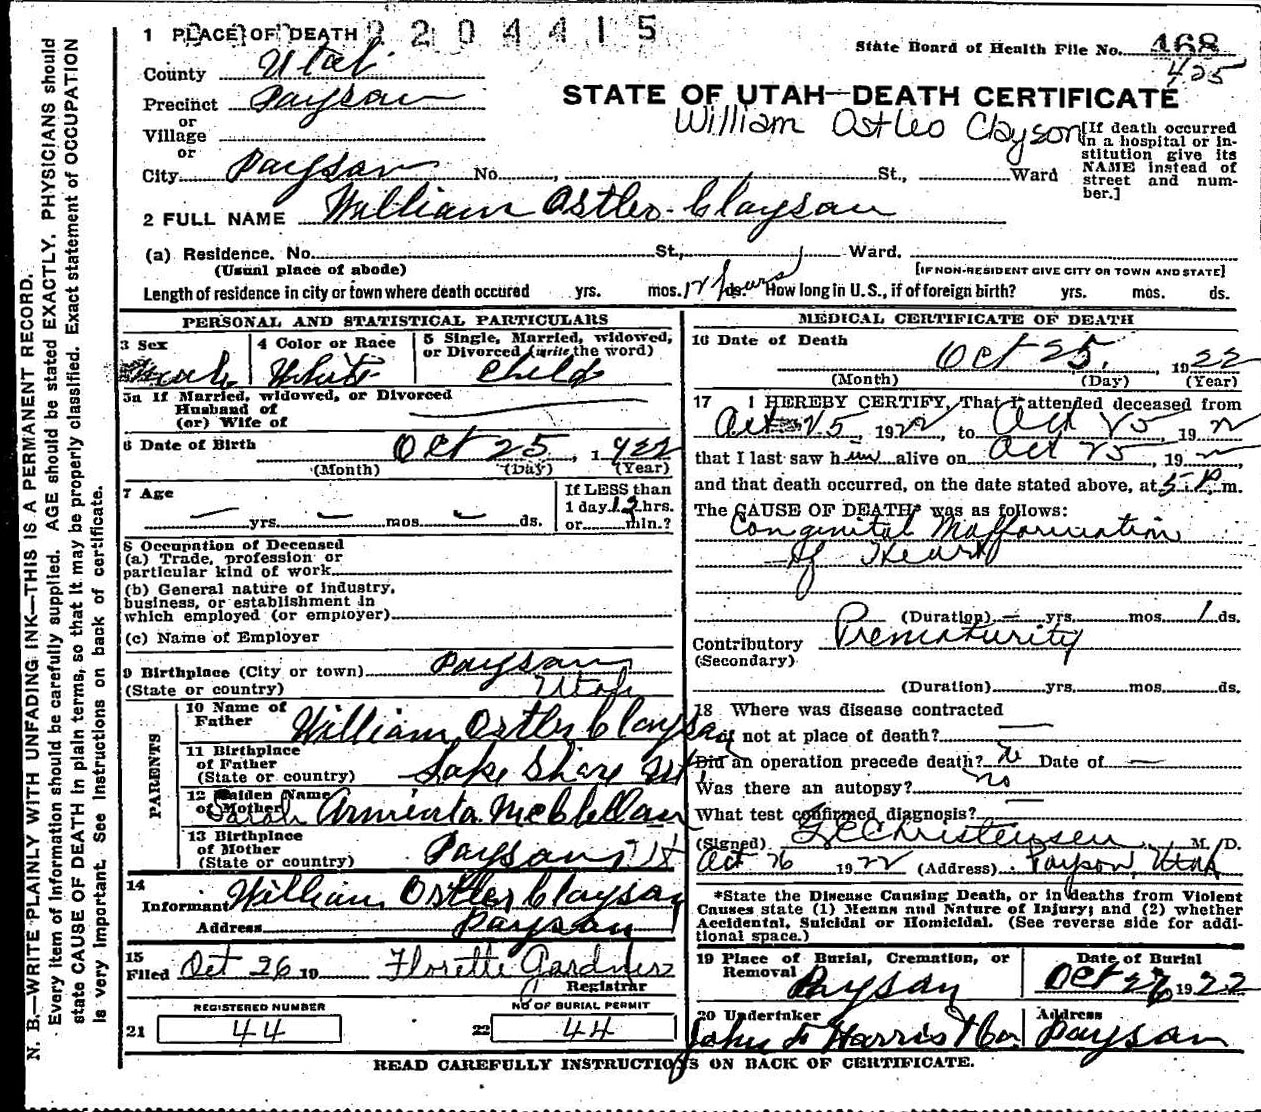 1 PLACE OF DEATH 2204415
State Board of Health File No. 468
425
County Utah
Precinct Payson
or
Village
or
City Payson No. , St., Ward
STATE OF UTAH—DEATH CERTIFICATE
William Ostleo Clayson
[If death occurred
in a hospital or in-
stitution give its
NAME instead of
street and num-
ber.]
2 FULL NAME William Ostler Clayson
(a) Residence. No. St., Ward.
(Usual place of abode) [IF NON-RESIDENT GIVE CITY OR TOWN AND STATE]
Length of residence in city or town where death occured yrs. mos. 12 hours ds. How long in U.S., if of foreign birth? yrs. mos. ds.
PERSONAL AND STATISTICAL PARTICULARS
3 Sex
4 Color or Race
White
5 Single, Married, widowed,
or Divorced (write the word)
Child
5a If Married, widowed, or Divorced
Husband of
(or) Wife of
6 Date of Birth Oct 25, 1922
(Month) (Day) (Year)
7 Age
— yrs. — mos — ds.
If LESS than
1 day 12 hrs.
or min.?
8 Occupation of Deceased
(a) Trade, profession or
particular kind of work
(b) General nature of industry,
business, or establishment in
which employed (or employer)
(c) Name of Employer
9 Birthplace (City or town) Payson
(State or country) Utah
PARENTS
10 Name of
Father William Ostler Clayson
11 Birthplace
of Father
(State or country) Lake Shore Ut.
12 Maiden Name
of Mother Sarah Arminta McClellan
13 Birthplace
of Mother
(State or country) Payson, Ut
14
Informant William Ostler Clayson
Address Payson
15
Filed Oct 26 19 Florette Gardner
Registrar
REGISTERED NUMBER
21 44
NO OF BURIAL PERMIT
22 44
MEDICAL CERTIFICATE OF DEATH
16 Date of Death Oct 25, 1922
(Month) (Day) (Year)
17 I HEREBY CERTIFY, That I attended deceased from
Oct 25, 1922, to Oct 25 1922
that I last saw him alive on Oct 25, 1922,
and that death occurred, on the date stated above, at 5 P. m.
The CAUSE OF DEATH* was as follows:
Congenital Malformation
of Heart
(Duration) — yrs. mos. 1 ds.
Contributory Prematurity
(Secondary)
(Duration) yrs. mos. ds.
18 Where was disease contracted
if not at place of death? —
Did an operation precede death? No Date of —
Was there an autopsy? no
What test confirmed diagnosis? —
(Signed) L C Christensen, M. D.
Oct 26 1922 (Address) Payson, Utah
*State the Disease Causing Death, or in deaths from Violent
Causes state (1) Means and Nature of Injury; and (2) whether
Accidental, Suicidal or Homicidal. (See reverse side for addi-
tional space.)
19 Place of Burial, Cremation, or
Removal
Payson
Date of Burial
Oct 26 1922
20 Undertaker
John F Harris & Co.
Address
Payson
READ CAREFULLY INSTRUCTIONS ON BACK OF CERTIFICATE.
N. B.—WRITE PLAINLY WITH UNFADING INK—THIS IS A PERMANENT RECORD.
Every item of information should be carefully supplied. AGE should be stated EXACTLY, PHYSICIANS should
state CAUSE OF DEATH in plain terms, so that it may be properly classified. Exact statement of OCCUPATION
is very important. See instructions on back of certificate.